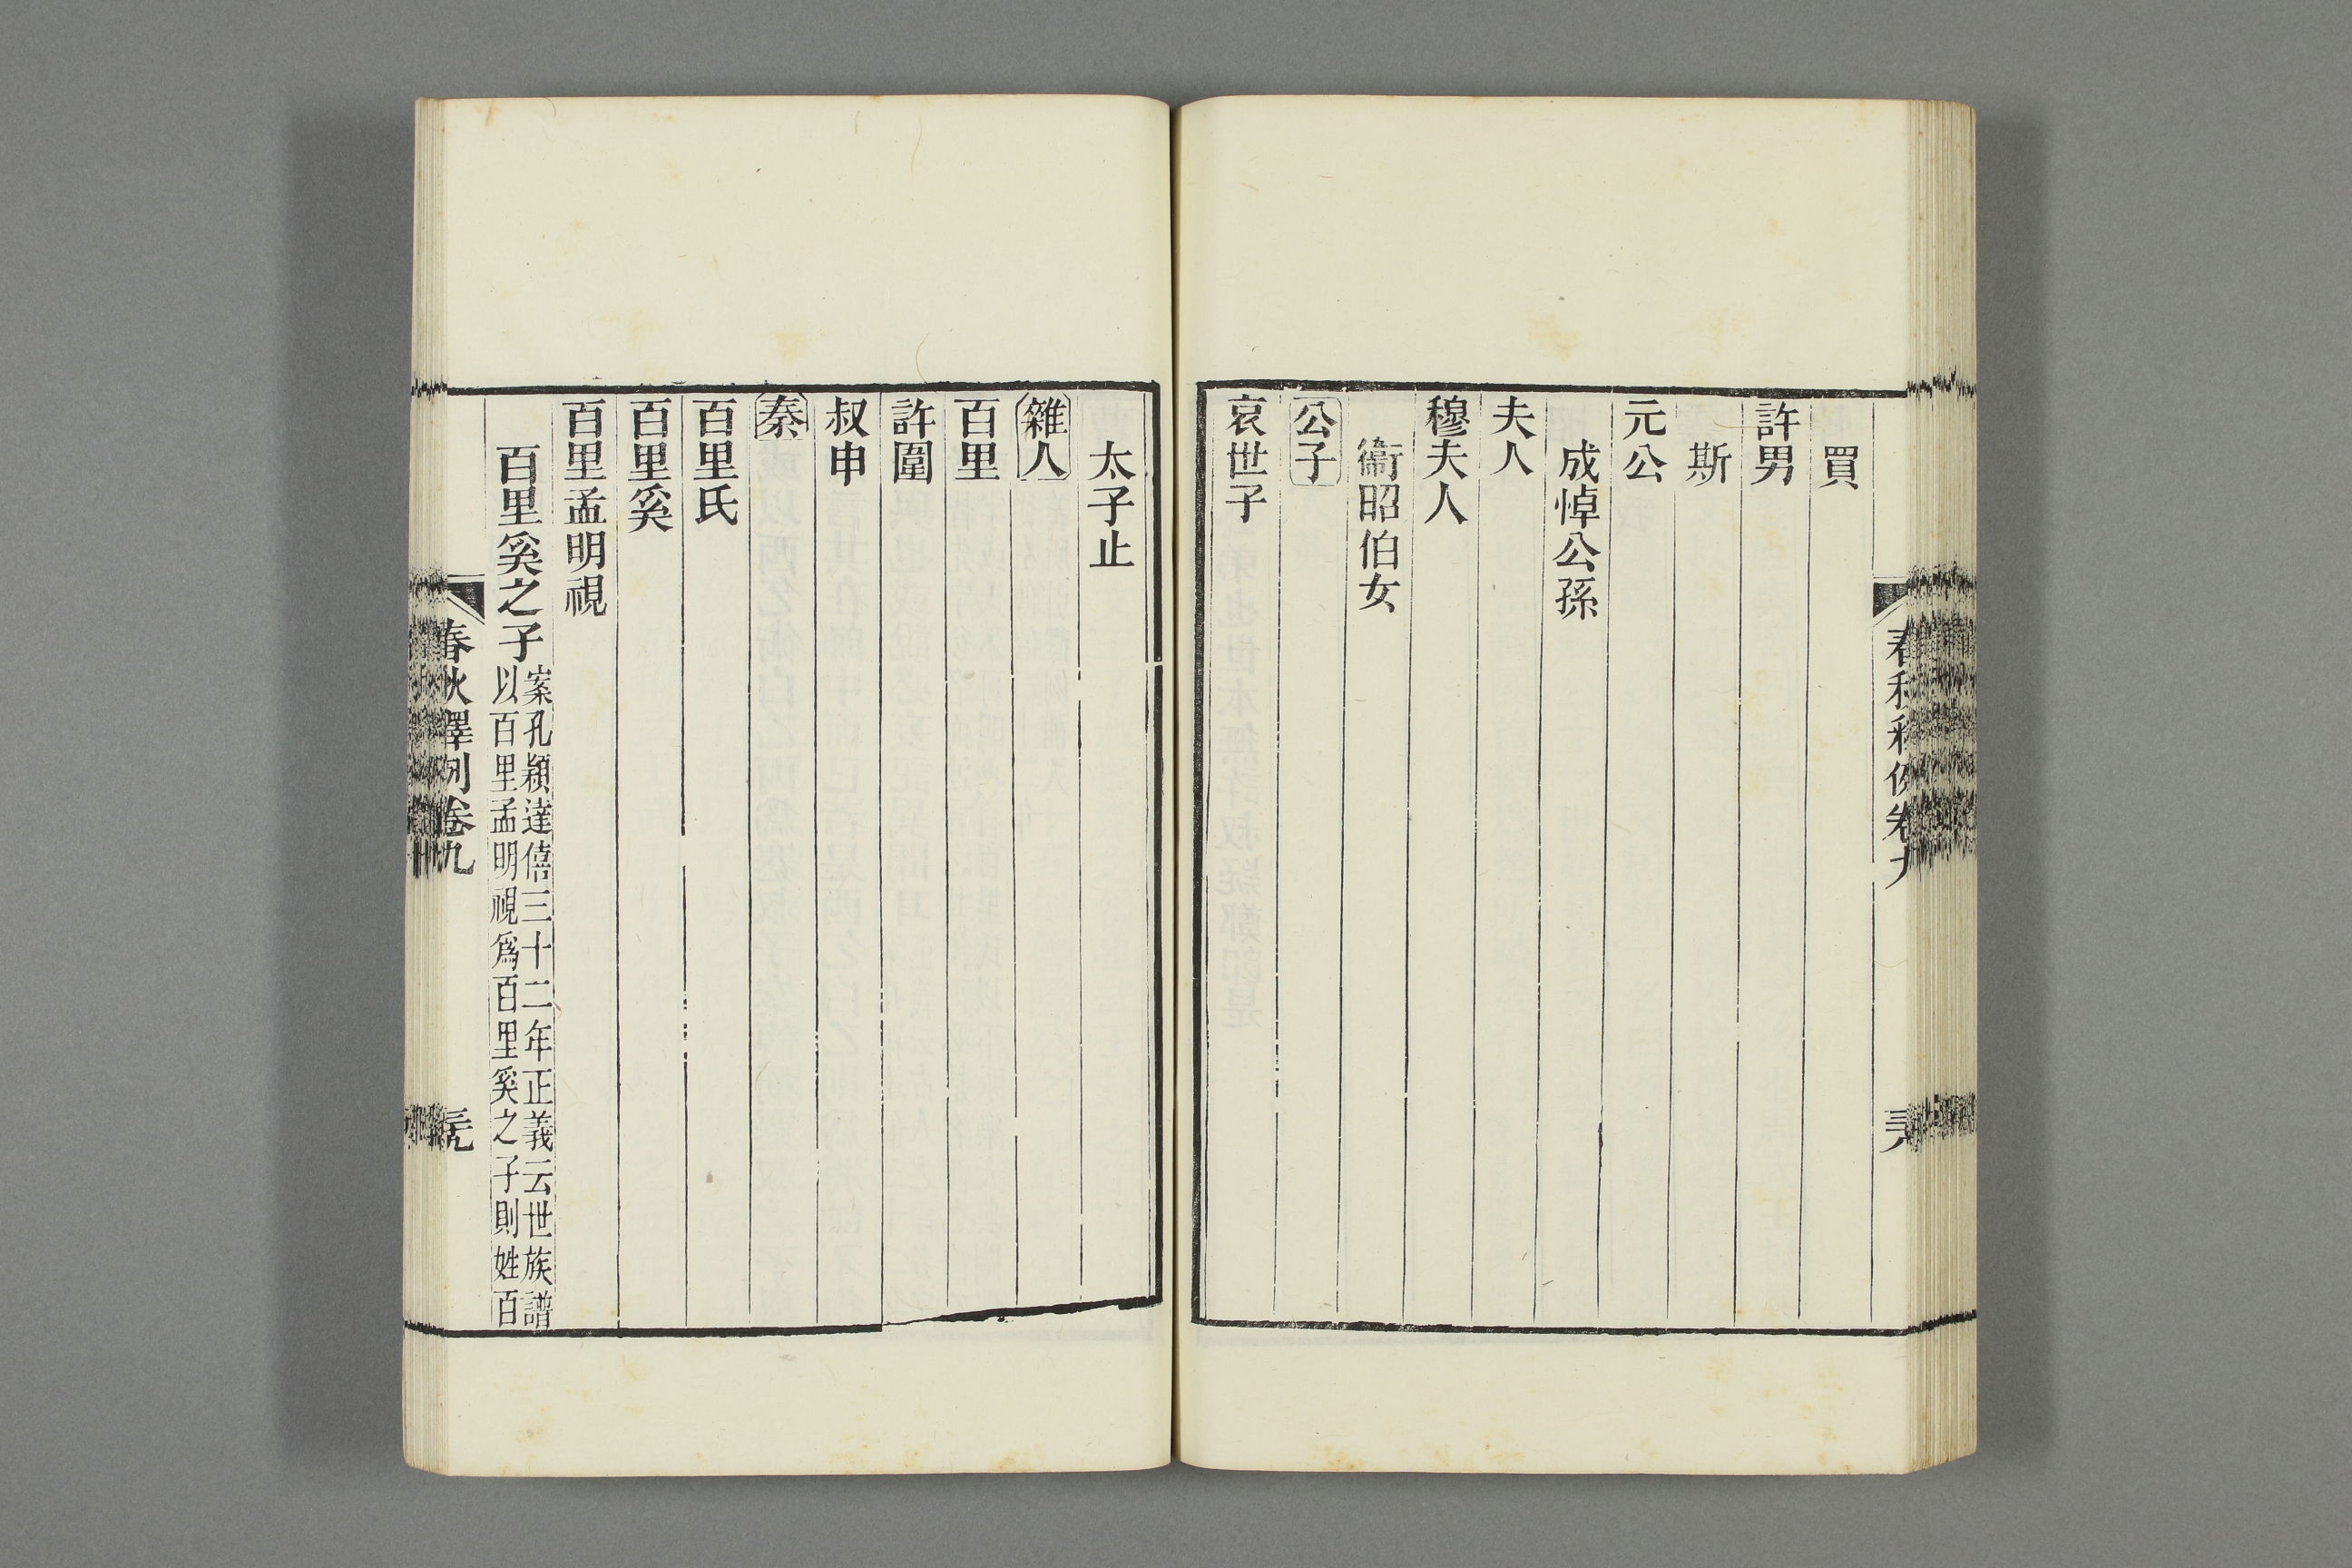 買
許男
斯
元公
成悼公孫
夫人
穆夫人
衞昭伯女
公子
哀世子
太子止
雜人
百里
許圍
叔申
秦
百里氏
百里奚
百里孟明視
百里奚之子案孔穎達僖三十二年正義云世族譜
以百里孟明視爲百里奚之子則姓百
春秋釋例卷九